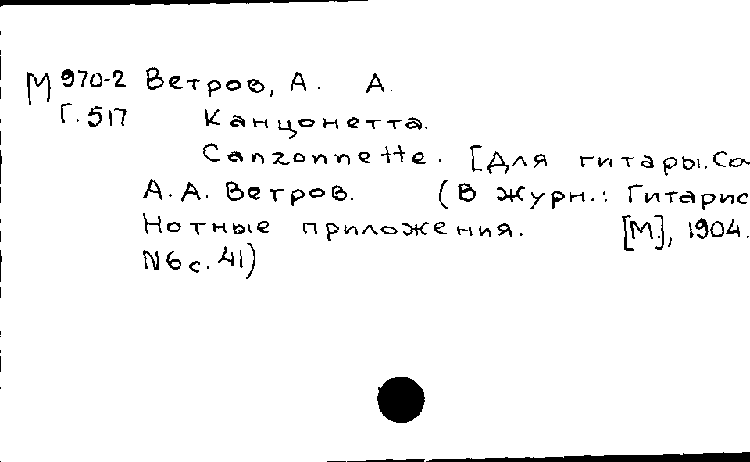 М 970-2 Ветров, А. А.
Г. 517 Канцонетта.
Canzonnette. [Для гитары. Со
А. А. Ветров. (В журн.: Гитарис
Нотные приложения. [М], 1904.
N6 с. 41)